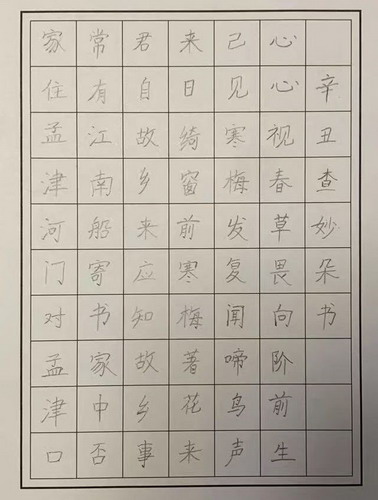 家住孟津河门对孟津口
常有江南船寄书家中否
君自故乡来应知故乡事
来日绮窗前寒梅著花来
己见寒梅发复闻啼鸟声
心心视春草畏向阶前生
辛丑查妙朵书